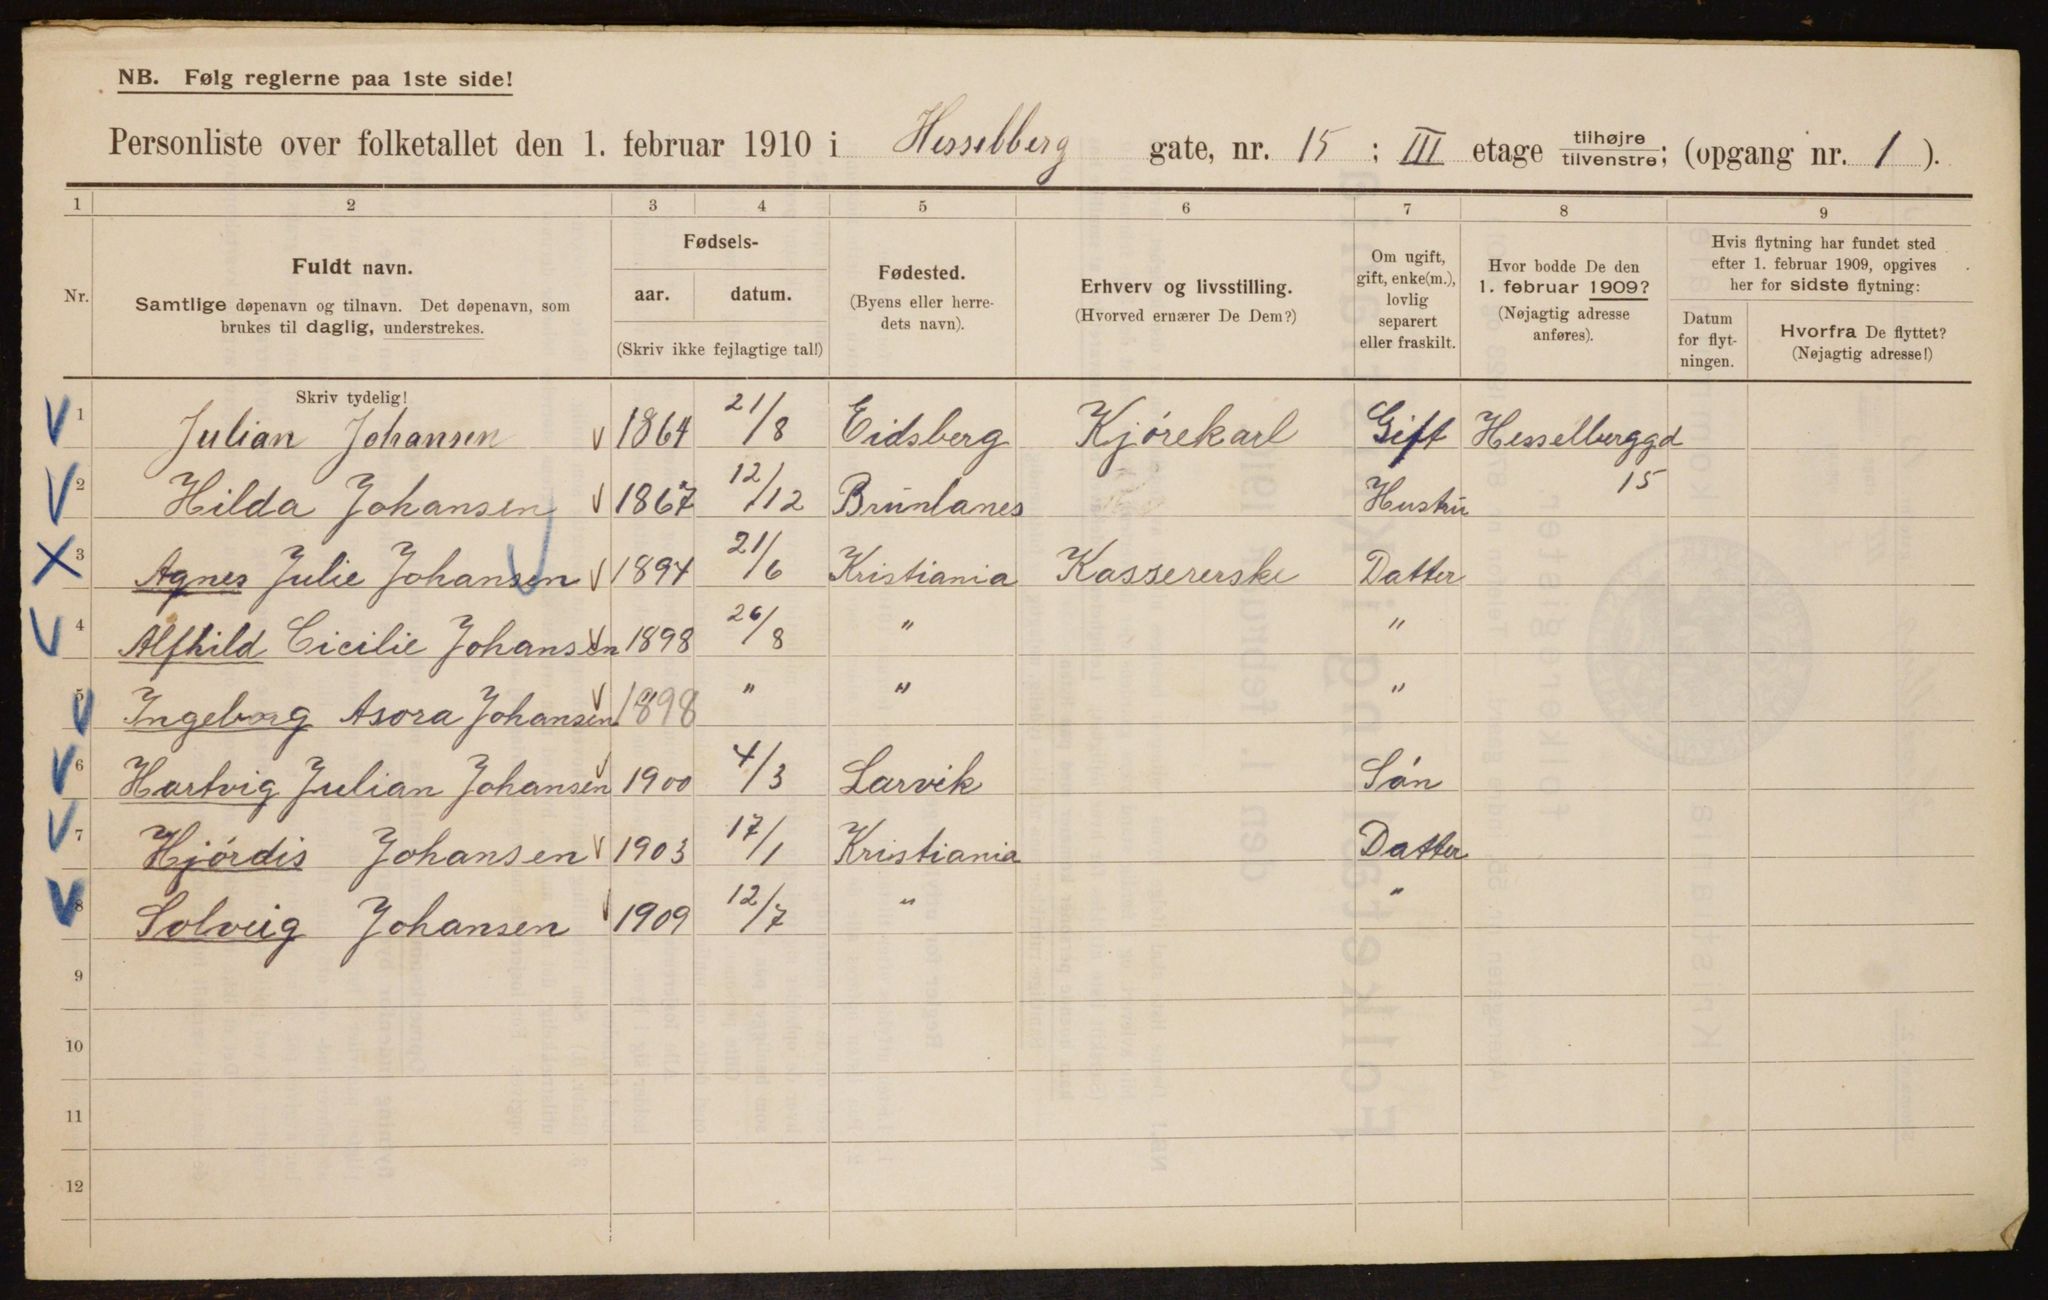 NB. Følg reglerne paa 1ste side!
Personliste over folketallet den 1. februar 1910 i Hesselberg gate, nr. 15; III etage tilhøjre/tilvenstre; (opgang nr. 1).
1 2 3 4 5 6 7 8 9
Nr.
Fuldt navn.
Samtlige døpenavn og tilnavn. Det døpenavn, som
brukes til daglig, understrekes.
Fødsels-
aar. datum.
(Skriv ikke fejlagtige tal!)
Fødested.
(Byens eller herre-
dets navn).
Erhverv og livsstilling.
(Hvorved ernærer De Dem?)
Om ugift,
gift, enke(m.),
lovlig
separert
eller fraskilt.
Hvor bodde De den
1. februar 1909?
(Nøjagtig adresse
anføres).
Hvis flytning har fundet sted
efter 1. februar 1909, opgives
her for sidste flytning:
Datum
for flyt-
ningen.
Hvorfra De flyttet?
(Nøjagtig adresse!)
Skriv tydelig!
1 Julian Johansen 1864 21/8 Eidsberg Kjørekarl Gift Hesselberggd
2 Hilda Johansen 1867 12/12 Brunlanes Hustru 15
3 Agnes Julie Johansen 1894 21/6 Kristiania Kassererske Datter
4 Alfhild Cicilie Johansen 1898 26/8 " "
5 Ingeborg Asora Johansen 1898 " " "
6 Hartvig Julian Johansen 1900 4/3 Larvik Søn
7 Hjørdis Johansen 1903 17/1 Kristiania Datter
8 Solveig Johansen 1909 12/7 " "
9
10
11
12